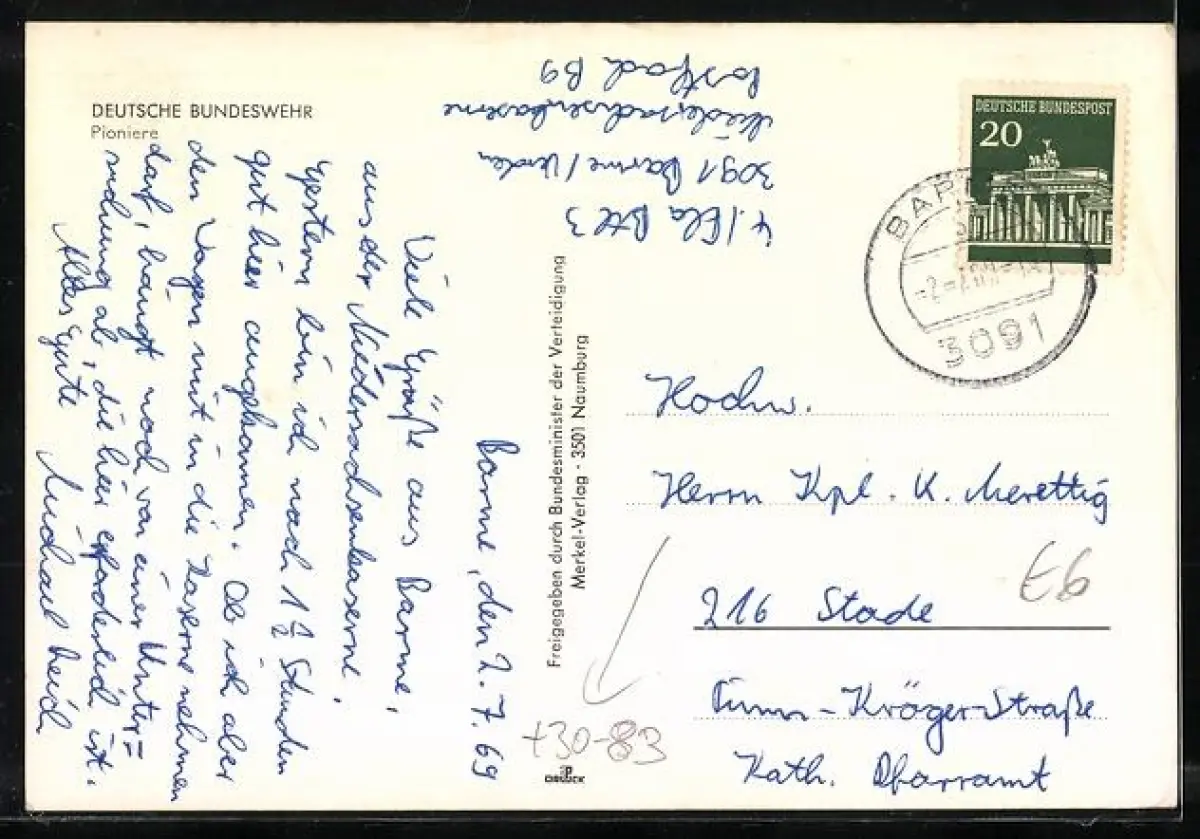 DEUTSCHE BUNDESWEHR
Pioniere
4./Fla Btl 3
3091 Barme/Verden
Niedersachsenkaserne
Postfach B9
Barme, den 2.7.69
Viele Grüße aus Barme,
aus der Niedersachsenkaserne.
Gestern bin ich nach 1 1/2 Stunden
gut hier angekommen. Ob ich aber
den Wagen mit in die Kaserne nehmen
darf, hängt noch von einer Unter=
suchung ab, die hier erforderlich ist.
Alles Gute
Michael
Freigegeben durch Bundesminister der Verteidigung
Merkel-Verlag · 3501 Naumburg
DEUTSCHE BUNDESPOST
20
BAR
3091
Hochw.
Herrn Kpl. K. Merettig
216 Stade
Timm-Kröger-Straße
Kath. Pfarramt
Eb
+30-83